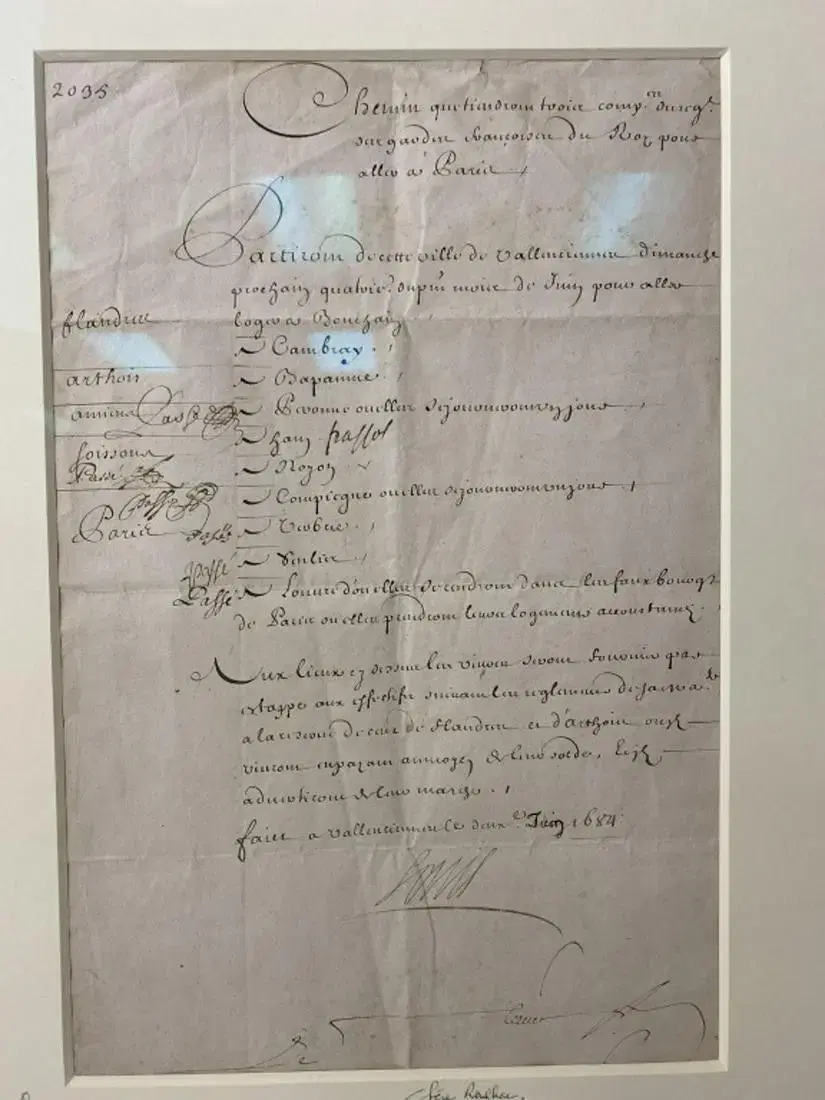 2035
Chemin que tiendront trois comp.es du reg.t
des gardes françoises du Roy pour
aller à Paris
Partiront de cette ville de Vallenciennes dimanche
prochain quatrie.e du pn̄t mois de Juin pour aller
flandres
loger à Bouchain
A Cambray
arthois
A Bapaume
amiens Passé
A Peronne ou elles séjourneront un jour
A ham passé
soissons
Passé
A Noyon
passé
A Compiegne ou elles séjourneront un jour
Paris passé
A Verberie
passé
A Senlis
Passé
A Louvre d'ou elles se rendront dans les faux bourgs
de Paris ou elles prendront leurs logemens accoustumez
Aux lieux cy dessus les vivres seront fournis par
estappe aux effectifs suivant les reglemens de sa Ma.té
a la reserve de ceux de flandres et d'arthois ou ilz
vivront en payant au moyen de leur solde, et ilz
de leur marche
faict a Vallenciennes le deux.e Juin 1684
Louis